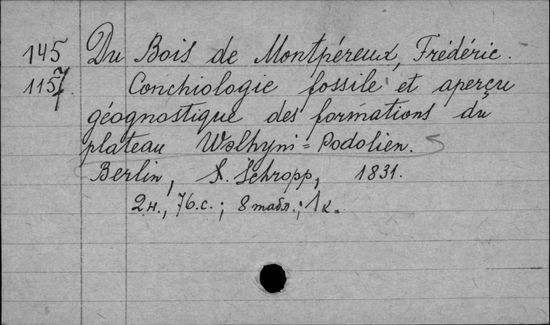 145 Du Bois de Montpéreux, Frédéric.
1157 Conchiologie fossile et aperçu
géognostique des formations du
plateau Wolhyni=Podolien.
Berlin, S. Schropp, 1831.
2 н., 76 с.; 8 табл.; 1 к.